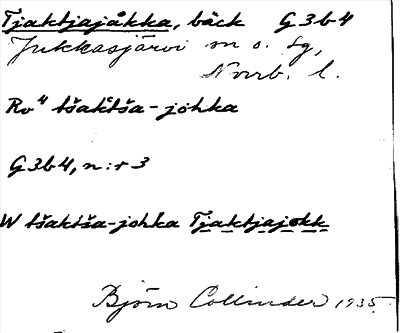 Tjaktjajåkka, bäck G3b4
Jukkasjärvi sn o. lg,
Norrb. l.
Rv⁴ tšaktša-johka
G3b4, n:r 3
W tšaktša-johka Tjaktjajokk
Björn Collinder 1935.